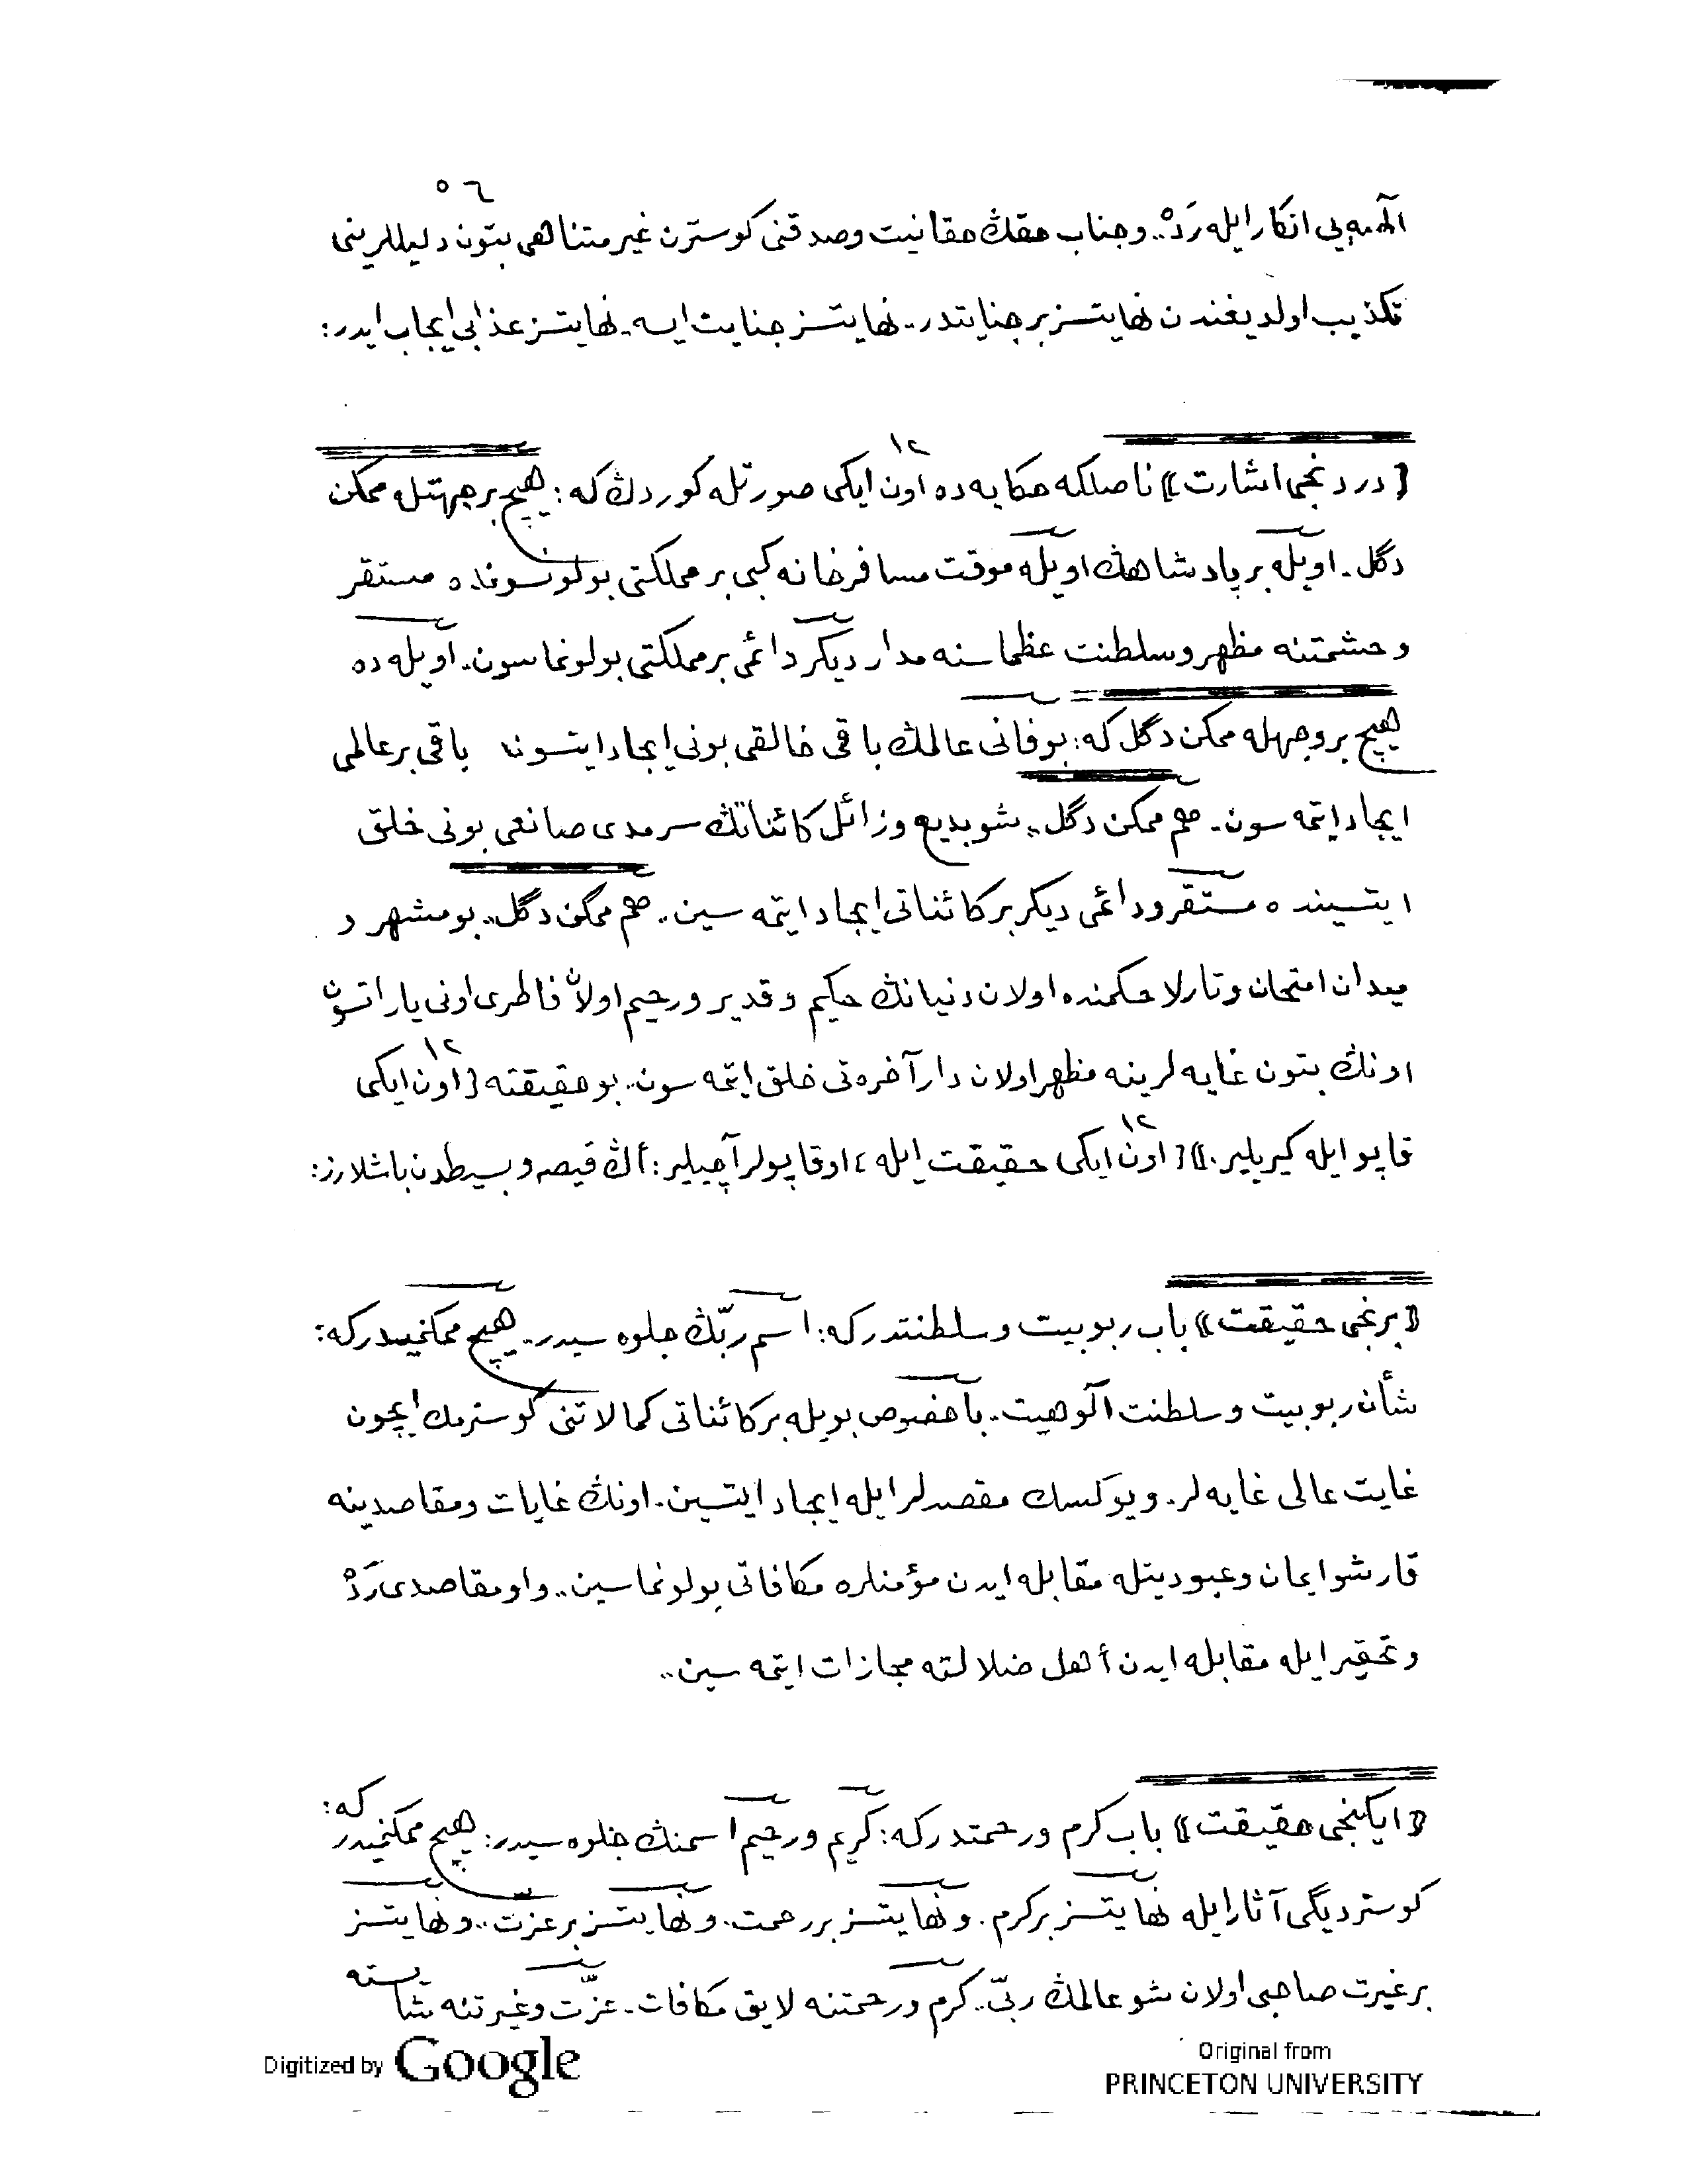 ٥٦
الٓهيه يى انكار ايله رَدْ.. وجناب حقڭ حقانيت وصدقنى كوسترن غير متناهى بتون دليللرينى
تكذيب اولديغندن نهايتسز بر جنايتدر.. نهايتسز جنايت ايسه.. نهايتسز عذابى ايجاب ايدر:
﴿ دردنجى اشارت ﴾ ناصلكه حكايه ده ١٢ اون ايكى صورتله كوردڭ كه: هيچ بر جهتله ممكن
دگل.. اويله بر پادشاهڭ اويله موقت مسافرخانه كبى بر مملكتى بولونسونده مستقر
و حشمتنه مظهر وسلطنت عظماسنه مدار ديگر دائمى بر مملكتى بولونماسون.. اويله ده
هيچ بر وجهله ممكن دگل كه: بو فانى عالمڭ باقى خالقى بونى ايجاد ايتسونده باقى بر عالمى
ايجاد ايتمه سون.. هم ممكن دگل.. شو بديع و زائل كائناتڭ سرمدى صانعى بونى خلق
ايتسينده مستقر ودائمى ديكر بر كائناتى ايجاد ايتمه سين.. هم ممكن دگل.. بو مشهر و
ميدان امتحان وتارلا حكمنده اولان دنيانڭ حكيم و قدير و رحيم اولان فاطرى اونى ياراتسون
اونڭ بتون غايه لرينه مظهر اولان دار آخره تى خلق ايتمه سون.. بو حقيقته ﴿ ١٢ اون ايكى
قاپو ايله كيريلير. ﴾ ﴿ ١٢ اون ايكى حقيقت ايله ، او قاپولر آچيلير: أڭ قيصه و بسيطدن باشلارز:
﴿ برنجى حقيقت ﴾ باب ربوبيت و سلطنتدر كه: اسم ربّڭ جلوه سيدر.. هيچ ممكنميدر كه:
شأن ربوبيت و سلطنت الٓوهيت.. باخصوص بويله بر كائناتى كمالاتنى كوسترمك ايچون
غايت عالى غايه لر. و يوكسك مقصدلر ايله ايجاد ايتسين.. اونڭ غايات ومقاصدينه
قارشو ايمان وعبوديتله مقابله ايدن مؤمنلره مكافاتى بولونماسين.. و او مقاصدى رَدْ
و تحقير ايله مقابله ايدن أهل ضلالته مجازات ايتمه سين..
﴿ ايكنجى حقيقت ﴾ باب كرم و رحمتدر كه: كريم و رحيم اسمنڭ جلوه سيدر: هيچ ممكنميدر كه:
كوستردیگى آثار ايله نهايتسز بر كرم. و نهايتسز بر رحمت.. و نهايتسز بر عزت.. و نهايتسز
بر غيرت صاحبى اولان شو عالمڭ ربّى.. كرم و رحمتنه لايق مكافات.. عزّت و غيرتنه شايسته
Digitized by Google
Original from
PRINCETON UNIVERSITY